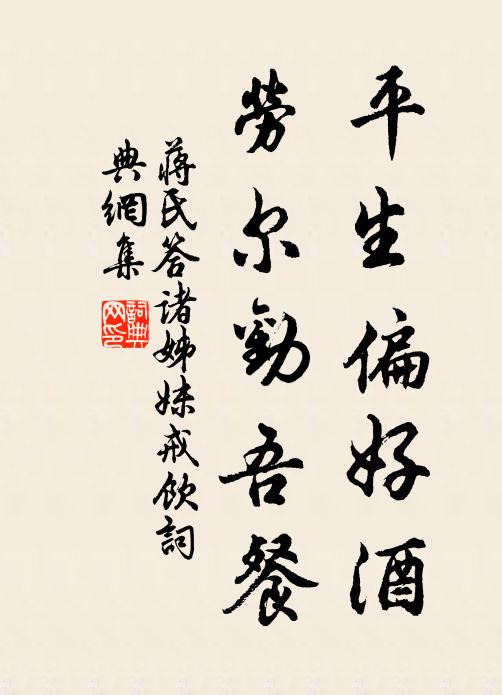 平生偏好酒
勞尔勸吾餐
蔣氏答诸姊妹戒飲詞
典網集
詞典网印